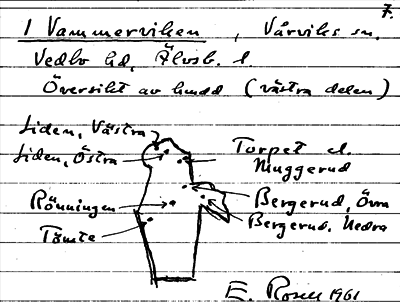 7.
1 Vammerviken, Vårviks sn.
Vedbo hd, Älvsb. l.
Översikt av hmdd (västra delen)
Liden, Västra
Liden, Östra
Torpet el.
Muggerud
Rönningen
Bergerud, Övra
Bergerud, Nedra
Tomte
E. Rosell 1961